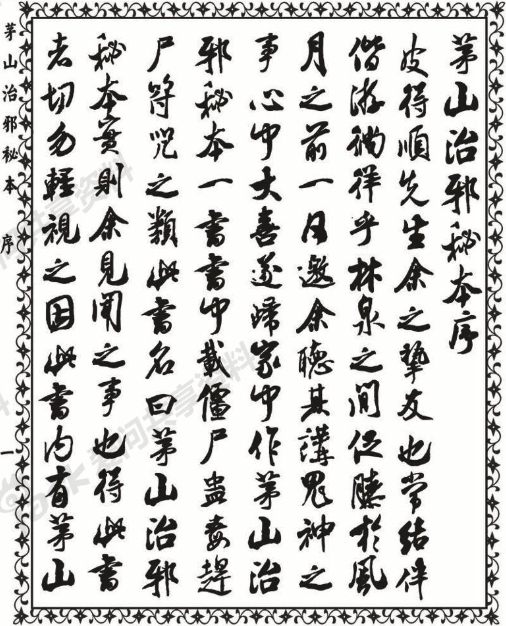 茅山治邪秘本序
皮得順先生余之摯友也常結伴
偕游徜徉乎林泉之间促膝於風
月之前一日邀余聽其講鬼神之
事心中大喜遂歸家中作茅山治
邪秘本一書書中載僵尸蛊毒趕
尸符咒之類此書名曰茅山治邪
秘本實則余見聞之事也得此書
者切勿輕視之因此書内有茅山
茅山治邪秘本 序 一
爱问共享资料